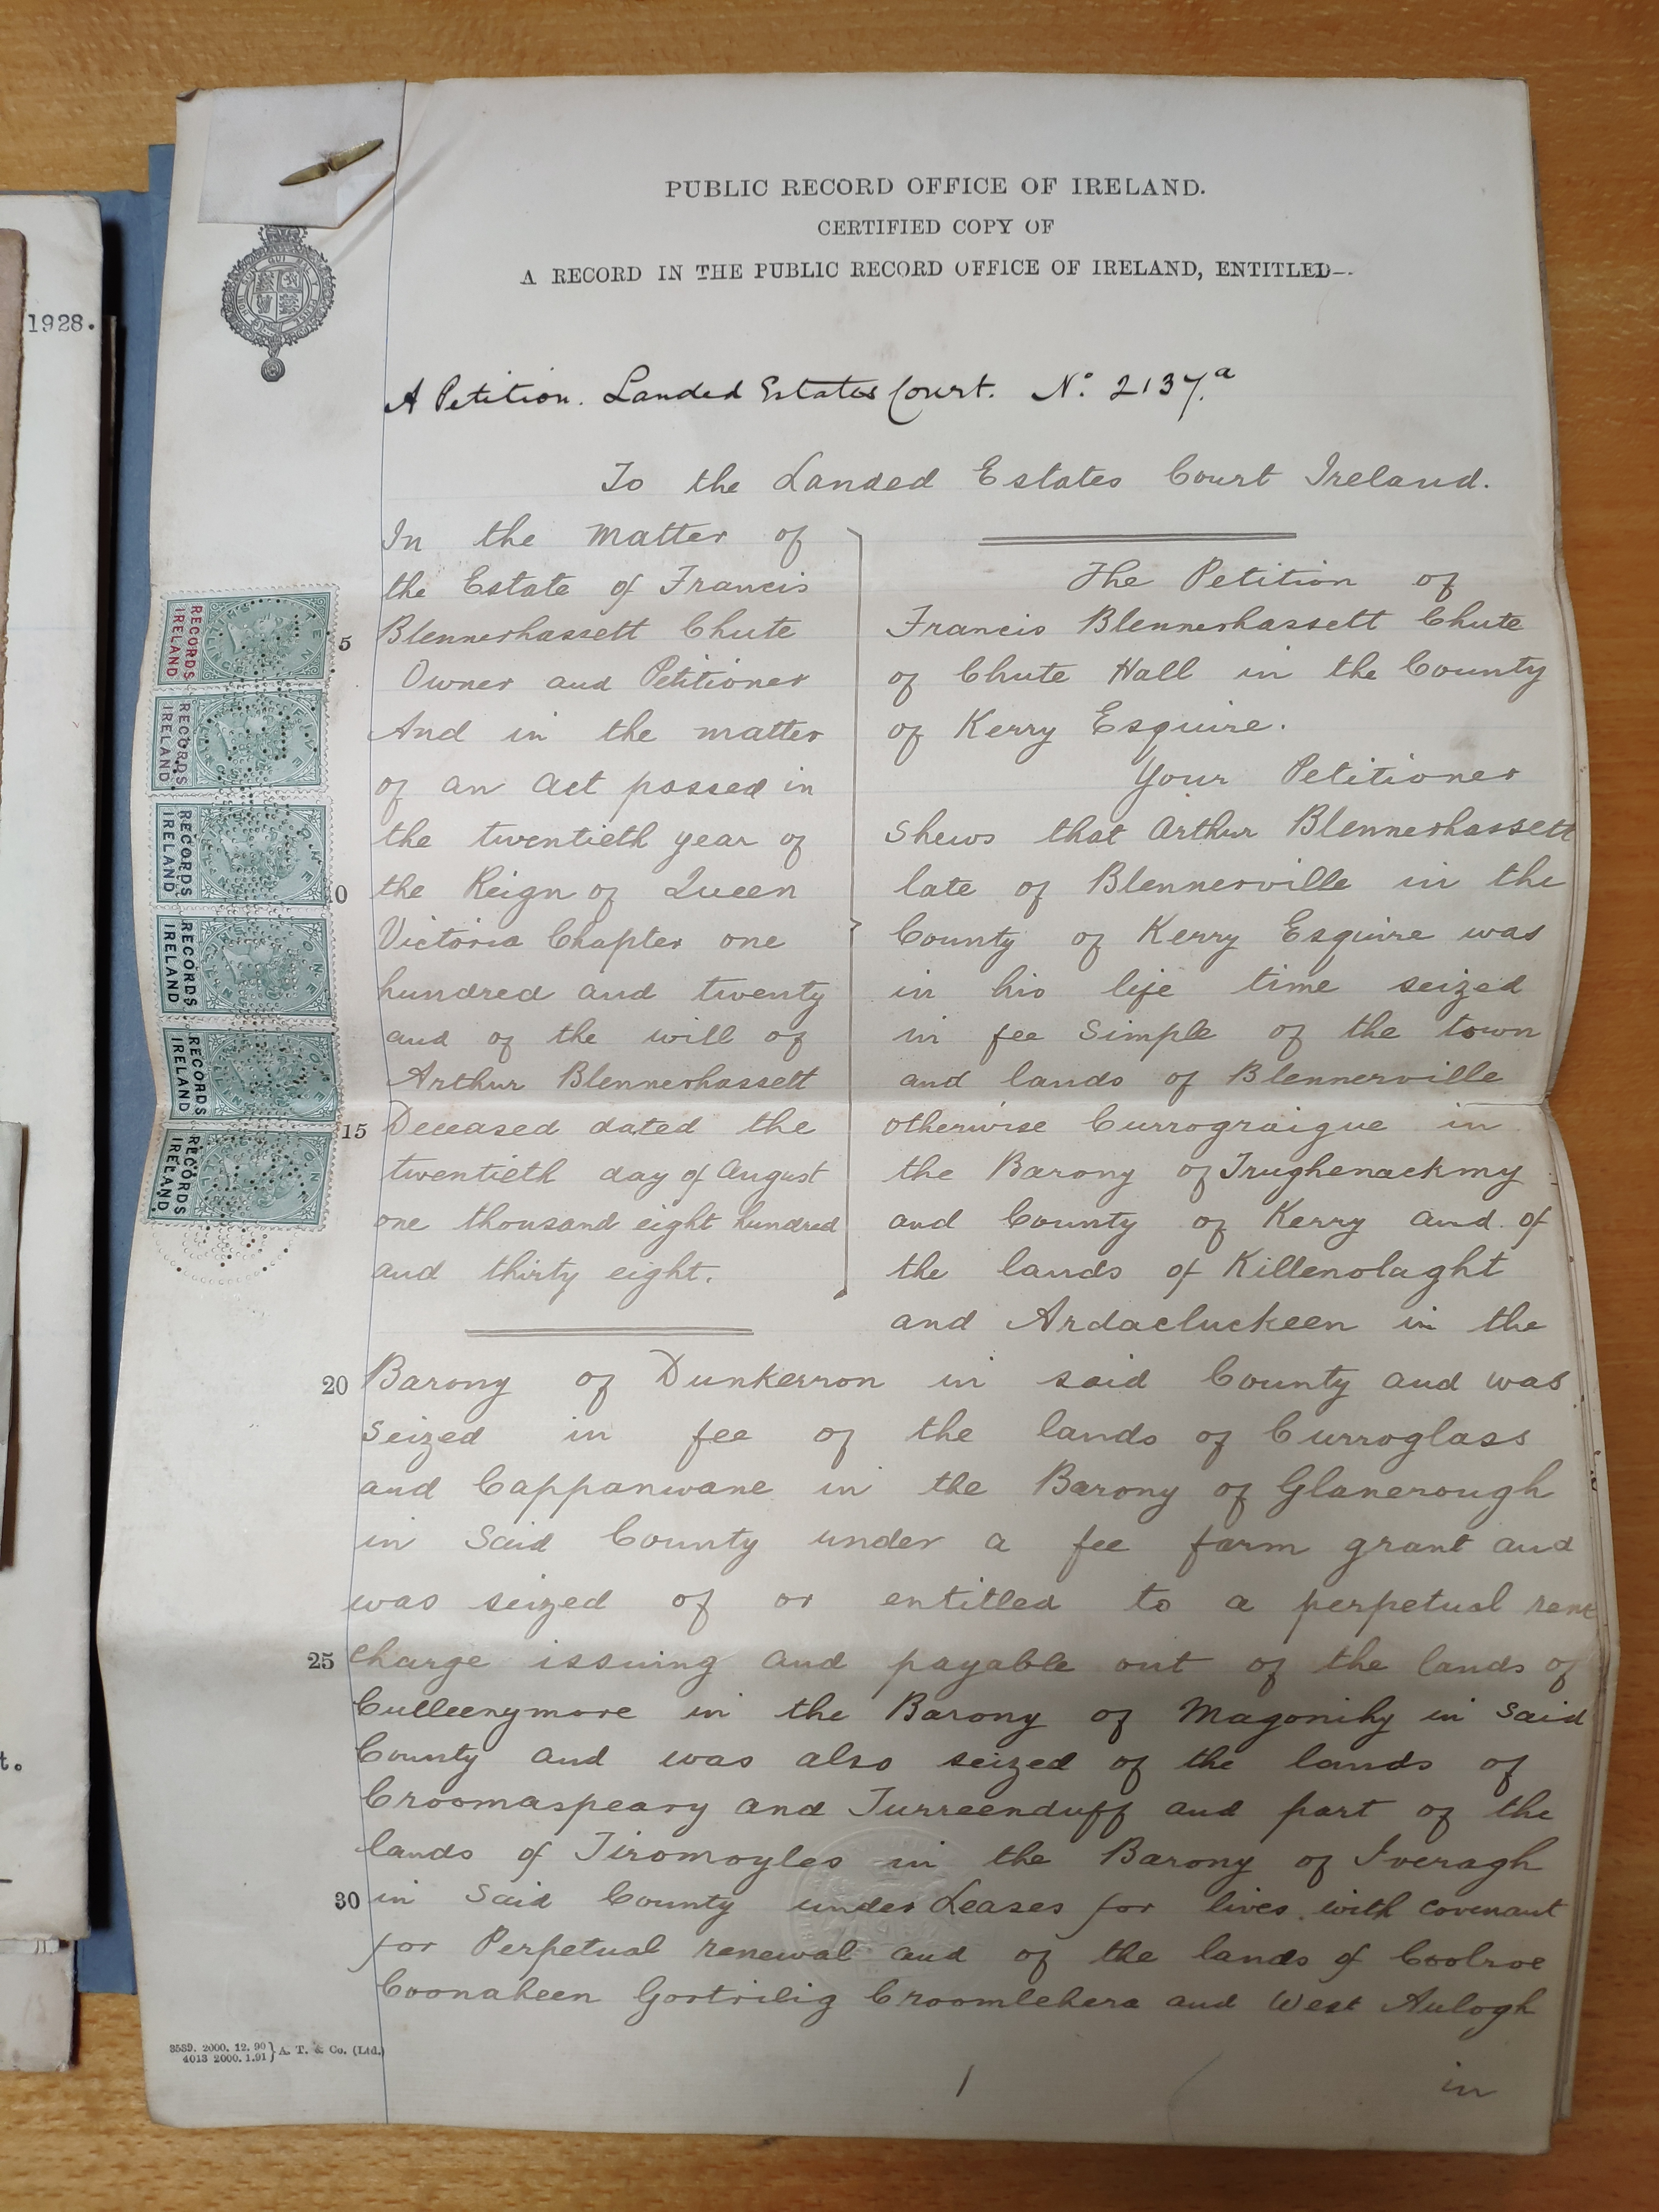 PUBLIC RECORD OFFICE OF IRELAND.
CERTIFIED COPY OF
A RECORD IN THE PUBLIC RECORD OFFICE OF IRELAND, ENTITLED—.
A Petition. Landed Estates Court. No. 2137.a
To the Landed Estates Court Ireland.
In the matter of
the Estate of Francis
5 Blennerhassett Chute
Owner and Petitioner
And in the matter
of an act passed in
the twentieth year of
10 the Reign of Queen
Victoria Chapter one
hundred and twenty
and of the will of
Arthur Blennerhassett
15 Deceased dated the
twentieth day of August
one thousand eight hundred
and thirty eight.
The Petition of
Francis Blennerhassett Chute
of Chute Hall in the County
of Kerry Esquire.
Your Petitioner
shews that Arthur Blennerhassett
late of Blennerville in the
County of Kerry Esquire was
in his life time seized
in fee simple of the town
and lands of Blennerville
otherwise Currograigue in
the Barony of Trughenackmy
and County of Kerry and of
the lands of Killenolaght
and Ardacluckeen in the
20 Barony of Dunkerron in said County and was
seized in fee of the lands of Curroglass
and Cappanwane in the Barony of Glanerough
in said County under a fee farm grant and
was seized of or entitled to a perpetual rent
25 charge issuing and payable out of the lands of
Culleenymore in the Barony of Magonihy in said
County and was also seized of the lands of
Croomaspeary and Turreenduff and part of the
lands of Tiromoyles in the Barony of Iveragh
30 in said County under Leases for lives with covenant
for Perpetual renewal and of the lands of Coolroe
Coonaheen Gortrilig Croomlehera and West Aulogh
in
1
3539. 2000. 12. 90 } A. T. & Co. (Ltd.)
4013 2000. 1.91
RECORDS IRELAND
RECORDS IRELAND
RECORDS IRELAND
RECORDS IRELAND
RECORDS IRELAND
RECORDS IRELAND
1928.
t.